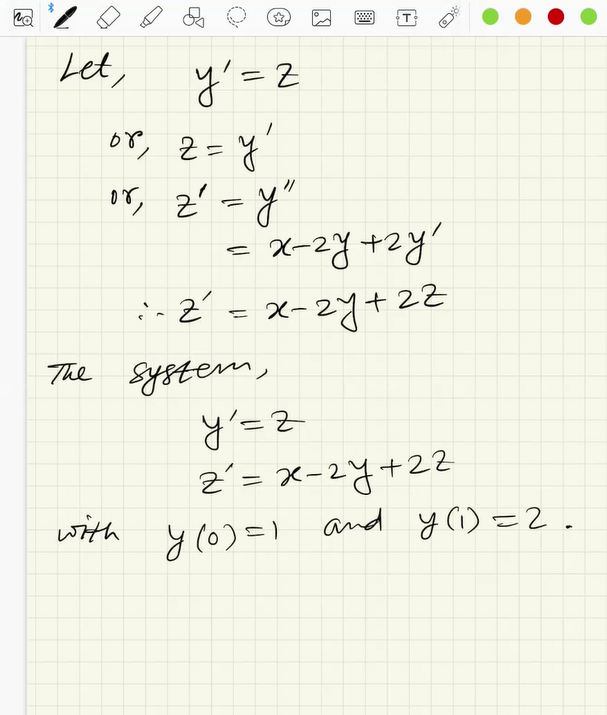 Let, y' = z
or, z = y'
or, z' = y"
= x-2y+2y'
∴ z' = x-2y+2z
The system,
y' = z
z' = x-2y+2z
with y(0)=1 and y(1)=2.